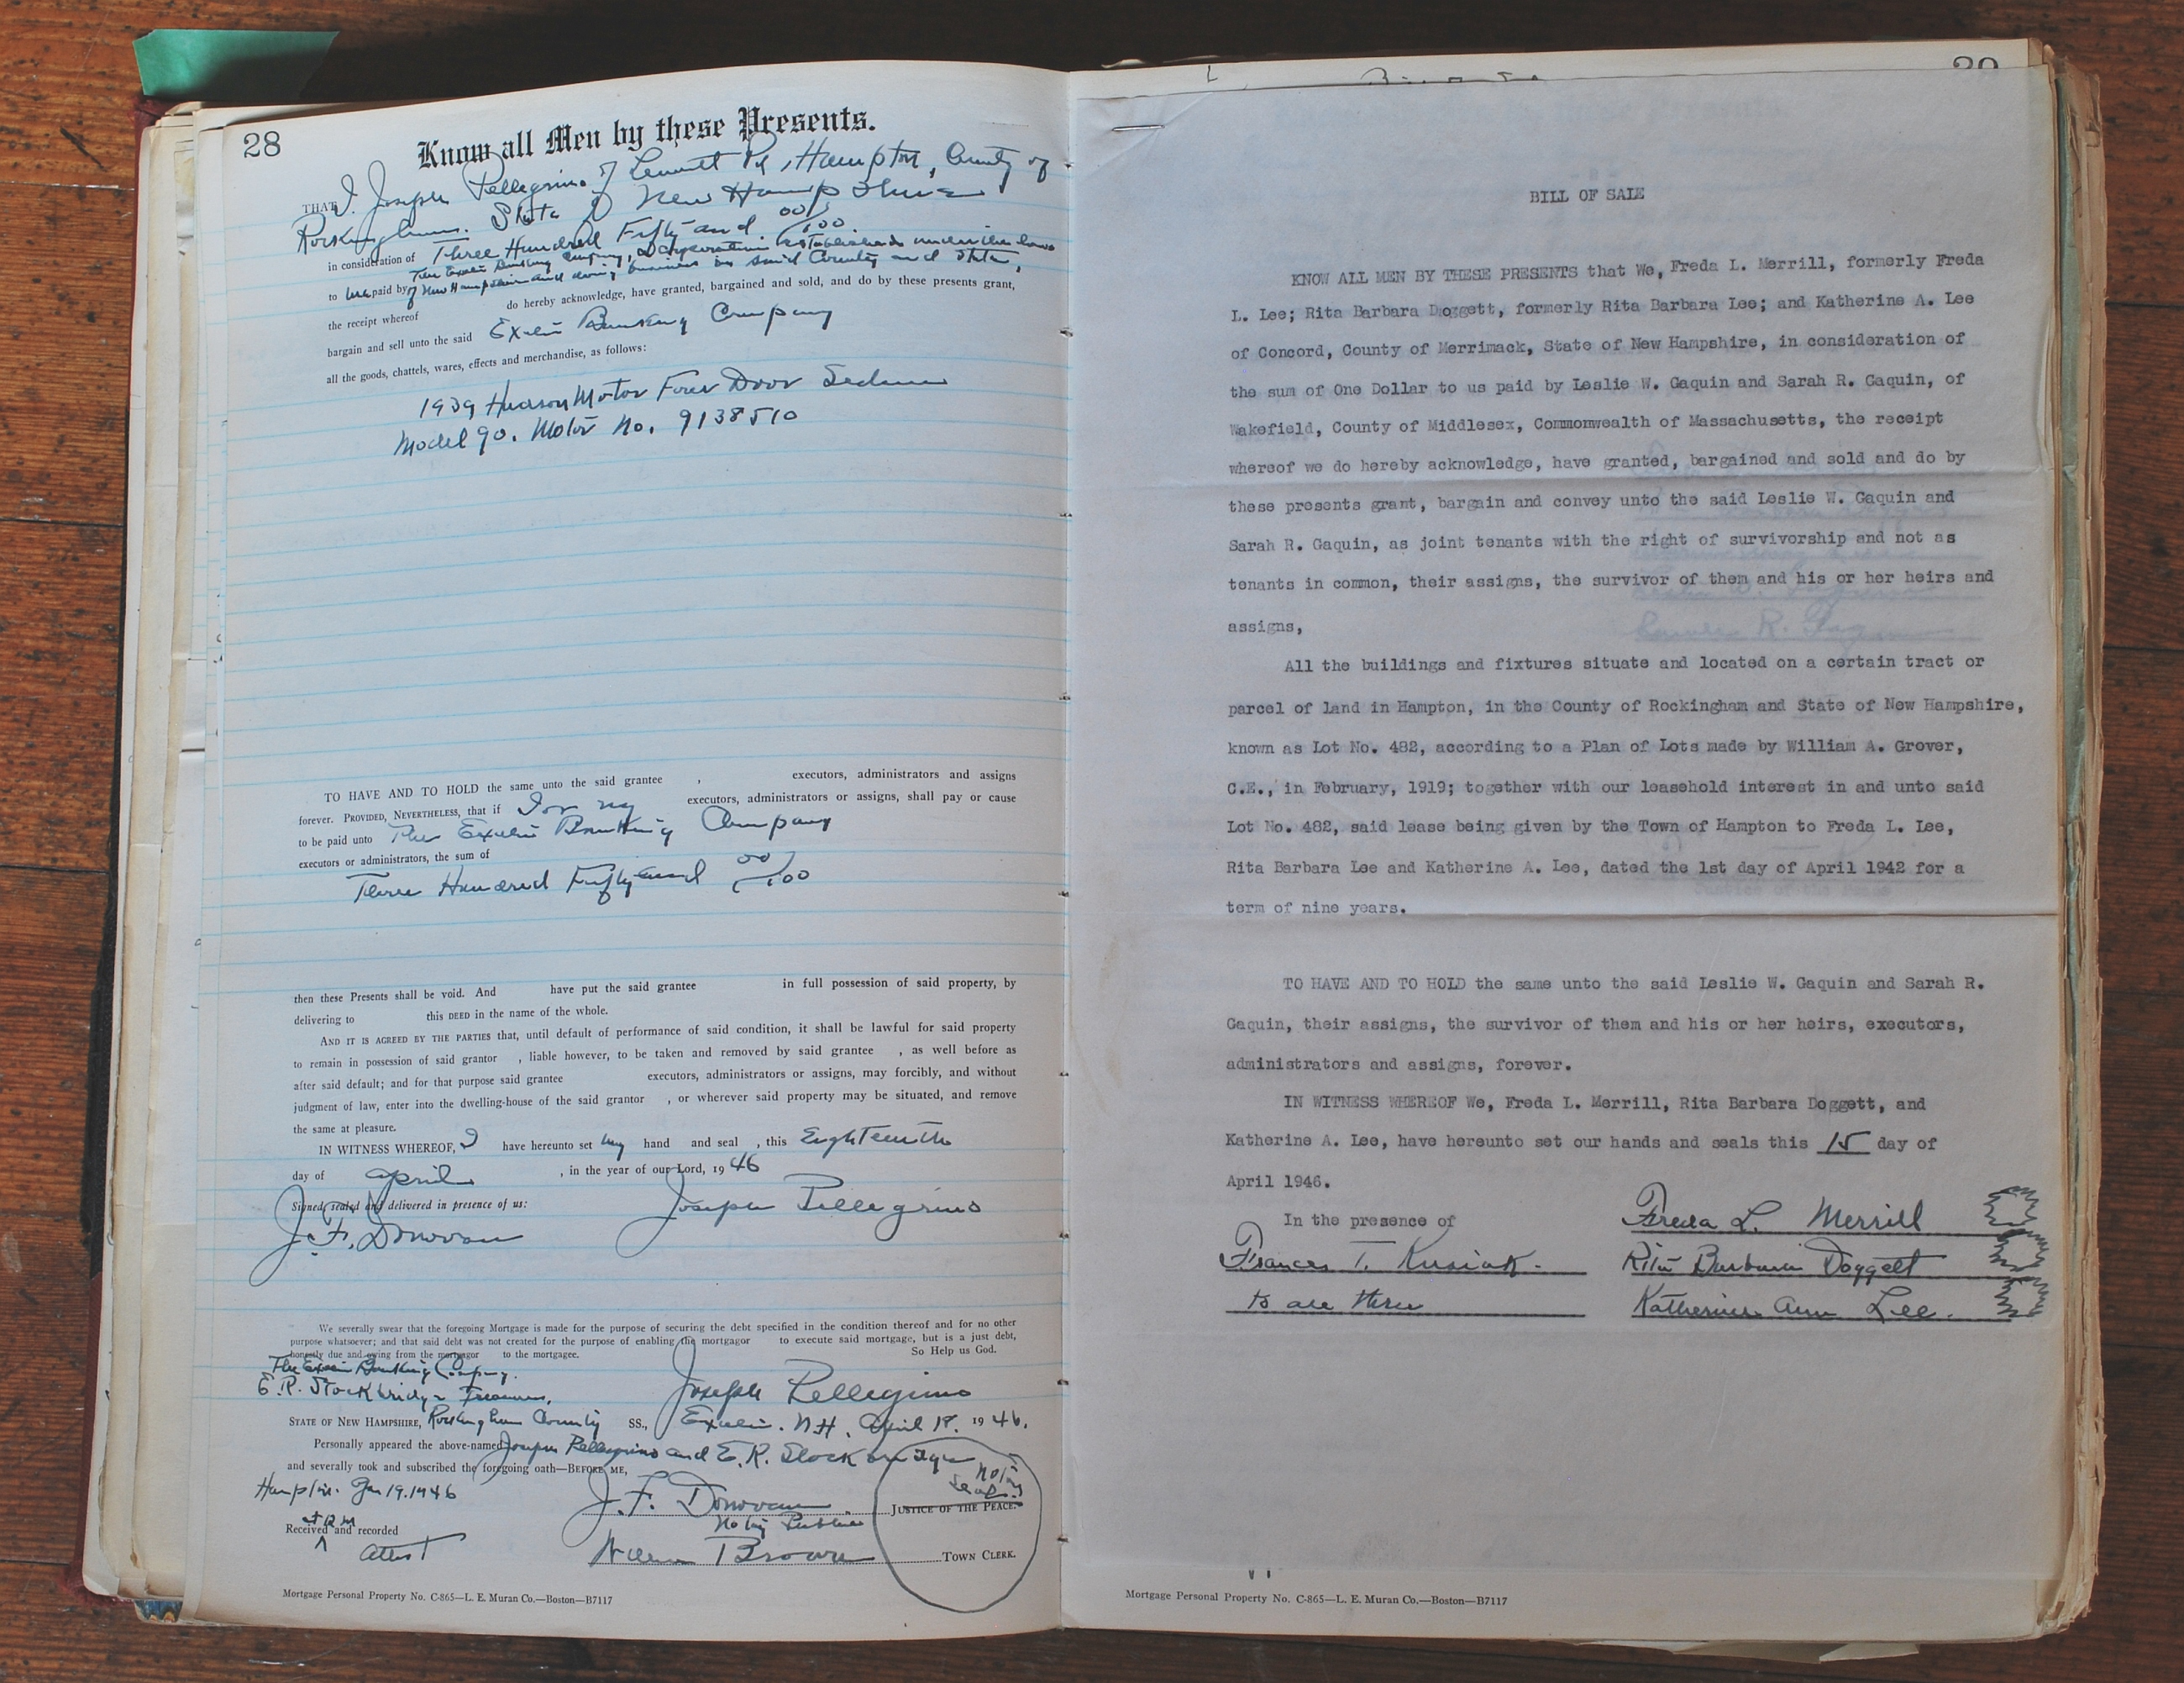 28
Know all Men by these Presents.
THAT I, Joseph Pellegrino of Leavitt Rd, Hampton, County of
Rockingham, State of New Hampshire
in consideration of Three Hundred Fifty and 00/100
to me paid by The Exeter Banking Company, a corporation established under the laws
of New Hampshire and doing business in said County and State,
the receipt whereof do hereby acknowledge, have granted, bargained and sold, and do by these presents grant,
bargain and sell unto the said Exeter Banking Company
all the goods, chattels, wares, effects and merchandise, as follows:
1939 Hudson Motor Four Door Sedan
Model 90. Motor No. 9138510
TO HAVE AND TO HOLD the same unto the said grantee , executors, administrators and assigns
forever. PROVIDED, NEVERTHELESS, that if I or my executors, administrators or assigns, shall pay or cause
to be paid unto The Exeter Banking Company
executors or administrators, the sum of
Three Hundred Fifty and 00/100
then these Presents shall be void. And have put the said grantee in full possession of said property, by
delivering to this DEED in the name of the whole.
AND IT IS AGREED BY THE PARTIES that, until default of performance of said condition, it shall be lawful for said property
to remain in possession of said grantor , liable however, to be taken and removed by said grantee , as well before as
after said default; and for that purpose said grantee executors, administrators or assigns, may forcibly, and without
judgment of law, enter into the dwelling-house of the said grantor , or wherever said property may be situated, and remove
the same at pleasure.
IN WITNESS WHEREOF, I have hereunto set my hand and seal , this Eighteenth
day of April , in the year of our Lord, 1946
Signed, sealed and delivered in presence of us:
J. F. Donovan Joseph Pellegrino
We severally swear that the foregoing Mortgage is made for the purpose of securing the debt specified in the condition thereof and for no other
purpose whatsoever; and that said debt was not created for the purpose of enabling the mortgagor to execute said mortgage, but is a just debt,
honestly due and owing from the mortgagor to the mortgagee. So Help us God.
The Exeter Banking Company.
E. R. Stockbridge Treasurer, Joseph Pellegrino
STATE OF NEW HAMPSHIRE, Rockingham County SS., Exeter, N.H. April 18. 1946.
Personally appeared the above-named Joseph Pellegrino and E. R. Stockbridge
and severally took and subscribed the foregoing oath—BEFORE ME,
Notary Seal
Hampton. 19. 1946 J. F. Donovan JUSTICE OF THE PEACE.
Notary Public
Received and recorded
Attest William Brown TOWN CLERK.
Mortgage Personal Property No. C-865—L. E. Muran Co.—Boston—B7117
BILL OF SALE
KNOW ALL MEN BY THESE PRESENTS that We, Freda L. Merrill, formerly Freda
L. Lee; Rita Barbara Doggett, formerly Rita Barbara Lee; and Katherine A. Lee
of Concord, County of Merrimack, State of New Hampshire, in consideration of
the sum of One Dollar to us paid by Leslie W. Gaquin and Sarah R. Gaquin, of
Wakefield, County of Middlesex, Commonwealth of Massachusetts, the receipt
whereof we do hereby acknowledge, have granted, bargained and sold and do by
these presents grant, bargain and convey unto the said Leslie W. Gaquin and
Sarah R. Gaquin, as joint tenants with the right of survivorship and not as
tenants in common, their assigns, the survivor of them and his or her heirs and
assigns,
All the buildings and fixtures situate and located on a certain tract or
parcel of land in Hampton, in the County of Rockingham and State of New Hampshire,
known as Lot No. 482, according to a Plan of Lots made by William A. Grover,
C.E., in February, 1919; together with our leasehold interest in and unto said
Lot No. 482, said lease being given by the Town of Hampton to Freda L. Lee,
Rita Barbara Lee and Katherine A. Lee, dated the 1st day of April 1942 for a
term of nine years.
TO HAVE AND TO HOLD the same unto the said Leslie W. Gaquin and Sarah R.
Gaquin, their assigns, the survivor of them and his or her heirs, executors,
administrators and assigns, forever.
IN WITNESS WHEREOF We, Freda L. Merrill, Rita Barbara Doggett, and
Katherine A. Lee, have hereunto set our hands and seals this 15 day of
April 1946.
In the presence of Freda L. Merrill
Frances T. Kusiak. Rita Barbara Doggett
to all three Katherine Ann Lee.
Mortgage Personal Property No. C-865—L. E. Muran Co.—Boston—B7117